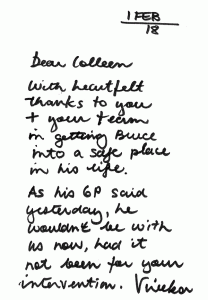 1 FEB
18
Dear Colleen
With heartfelt
thanks to you
+ your team
in getting Bruce
into a safe place
in his life.
As his GP said
yesterday, he
wouldn't be with
us now, had it
not been for your
intervention.